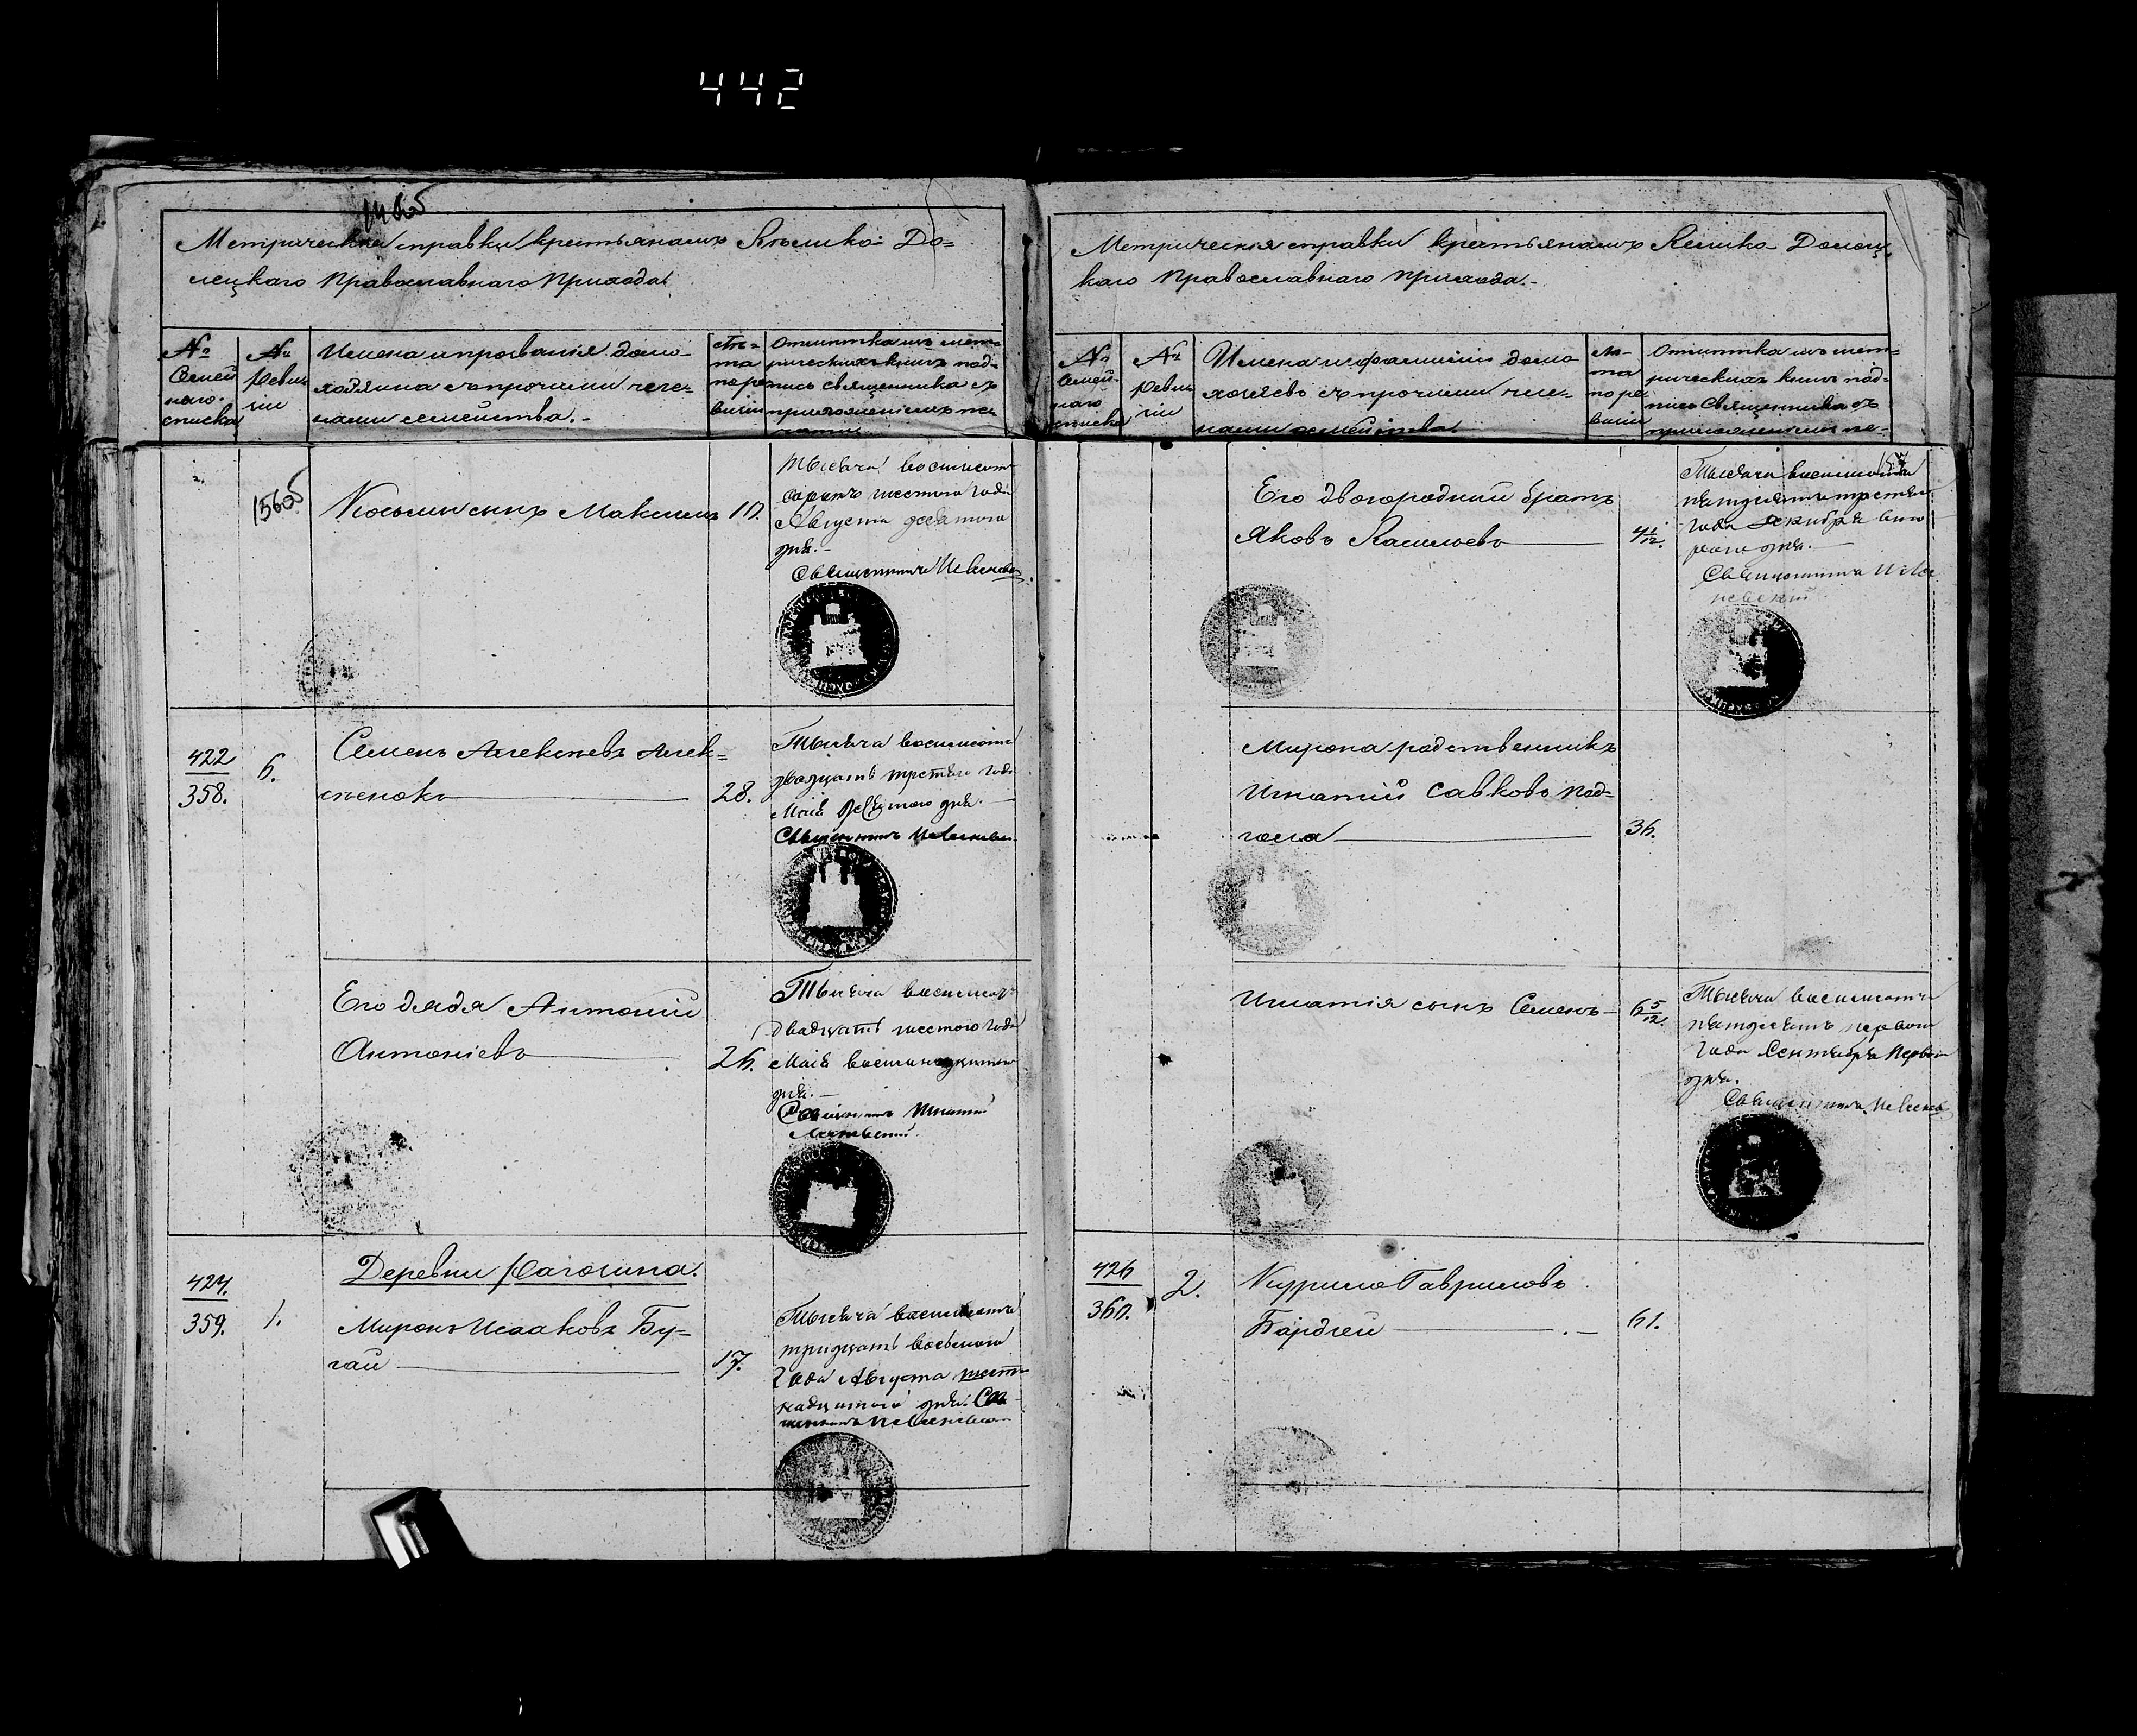 442
Метрическія справки крестьянамъ Велико-До=
лецкаго Православнаго Прихода.
№
Семей
наго
списка
№
Ревиз
іи
Имена и прозванія домо-
хозяина съ прочими чле-
нами семейства.-
Лѣ=
та
по ре
визіи
Отмѣтка изъ мет-
рическихъ книгъ под-
пись священника съ
приложеніемъ пе-
чати
1560б
Косьмы сынъ Максимъ 10.
Тысяча восемьсотъ
сорокъ шестого года
Августа девятого
дня.-
Священникъ
422
358.
6.
Семенъ Алексѣевъ Алек=
сѣенокъ
28.
Тысяча восемьсотъ
двадцать третьяго года
Маія девятого дня.-
Священникъ
Его дядя Антоній
Антоніевъ
26.
Тысяча восемьсотъ
двадцать шестого года
Маія восемнадцатого
дня.-
Священникъ Игнатій
424.
359.
1.
Деревни
Миронъ Исааковъ Бу=
гай
17.
Тысяча восемьсотъ
тридцать восьмого
года Августа шест-
надцатого дня. Свя
щенникъ
Метрическія справки крестьянамъ Велико-Долец
каго Православнаго Прихода.-
№
Семей-
наго
списка
№
Ревиз
іи
Имена и фамиліи домо
хозяевъ съ прочими чле-
нами семейства
Лѣ-
та
по ре
визіи
Отмѣтка изъ мет-
рическихъ книгъ под-
пись Священника съ
приложеніемъ пе-
Его двоюродный братъ
Яковъ Васильевъ
4 1/12.
Тысяча восемьсотъ
пятдесятъ третьяго
года Декабря вто
рого дня.-
Священникъ
Мирона родственникъ
Игнатій Савковъ Под=
гола
36.
Игнатія сынъ Семенъ-
6 5/12.
Тысяча восемьсотъ
пятдесятъ первого
года Сентября Первого
дня.
Священникъ
426
360.
2.
Куррило Гавриловъ
Бардзей
61.